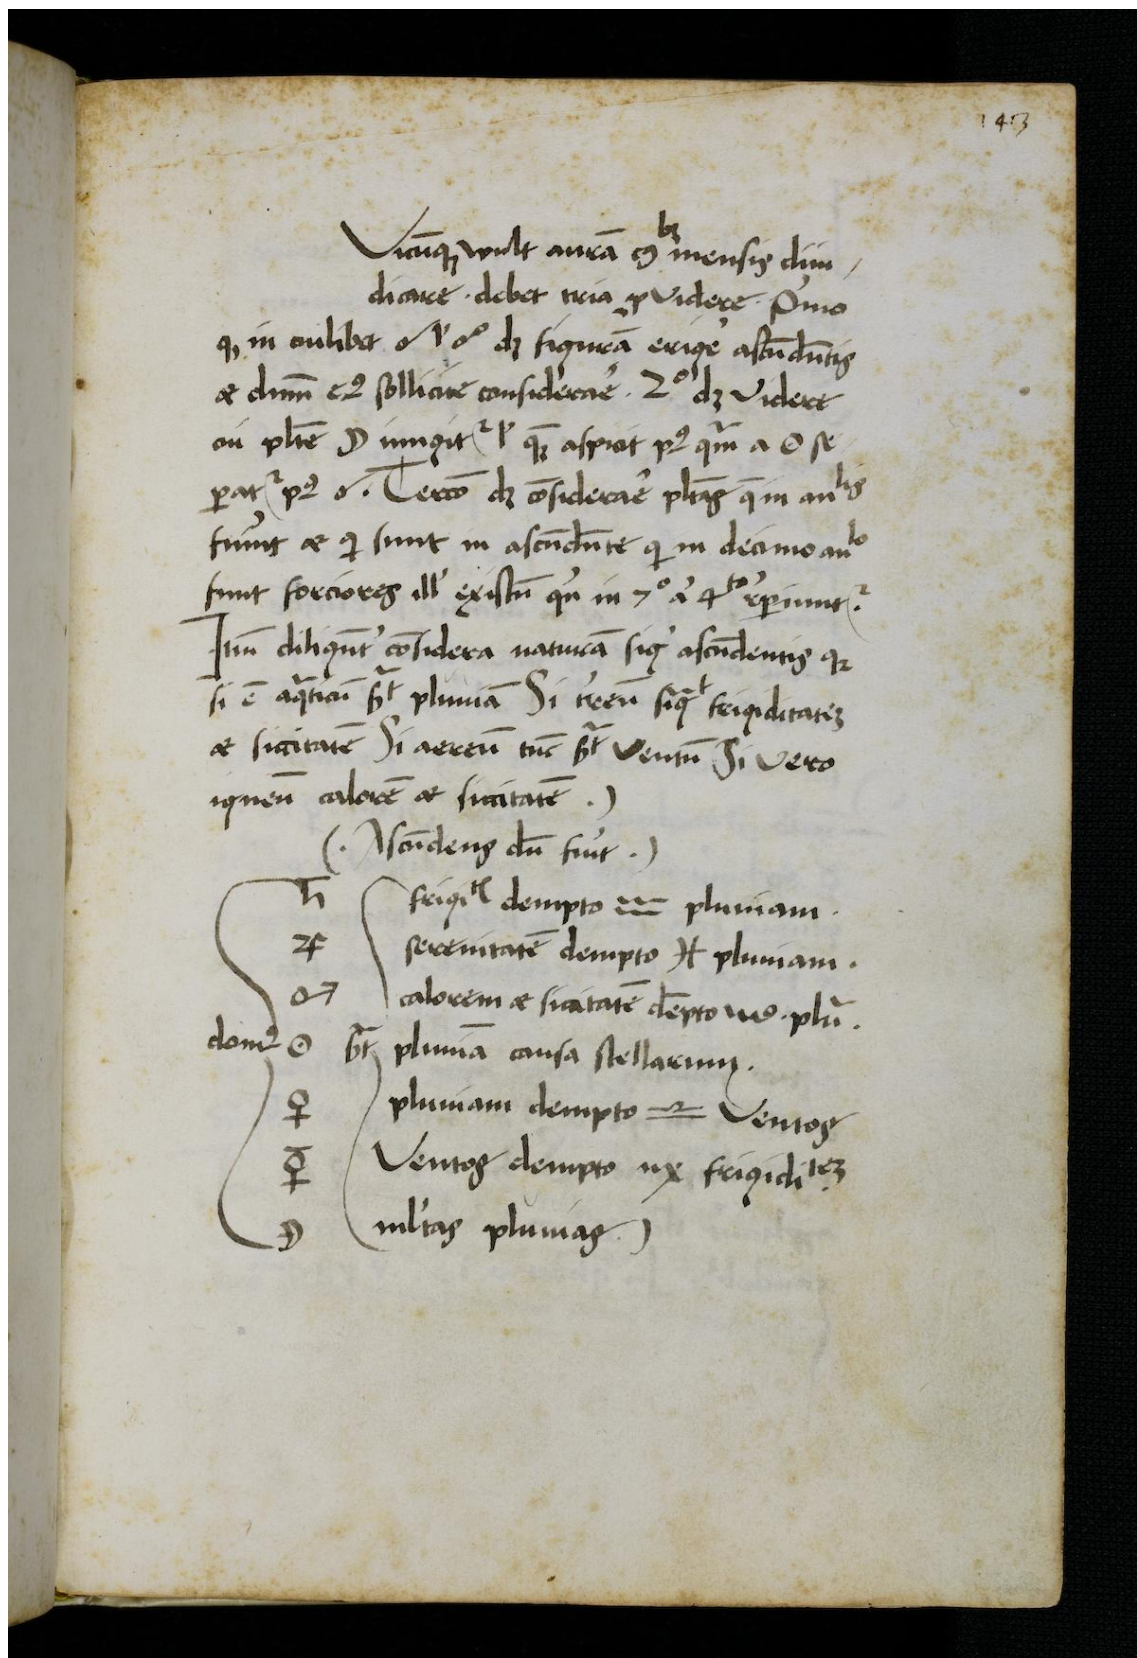 143
Vicūqꝫ wult aurā cꝯbꝫ mensis diiu
dicare · debet tria pvidere · P'mo
qꝫ in cuilibet ☌ vꝉ ☍ dꝫ figurā erige' ascēdētis
et dīnm eꝰ sollicite considerare' · 2º dꝫ videre
cū pltē ☽ iungit2 vꝉ qꝫ aspicit pꝰ qm̄ a ☉ se
parat2 pꝰ ☌ · Tercō dꝫ cōsiderare' pltās q̄ in anlis
fuīnt et qi sunt in ascēdēte qi in decimo anlo
sunt forciores illi' existūt qui in 7º a' 4to' rperiunt2.
Itm̄ diligēt' cōsidera naturā sig' ascēdentis qꝛ
si ē aqaticū sigt pluuiā Si t'reū siq̄t frigiditatēꝫ
et siccitatē Si aereū tūc sigt ventū Si vero
igneū calorē et siccitatē .)
(. Ascēdens dū fuit .)
♄ frigitē dempto ♒ pluuiam ·
♃ serenitatē dempto ♓ pluuiam ·
♂ calorem et siccitatē dēpto ♏ · pluā ·
domꝰ ☉ sigt pluuiā causa stellarum ·
♀ pluuiam dempto ♎ Ventos
☿ Ventos dempto ♍ frigiditēꝫ
☽ ml'tas pluuias .)